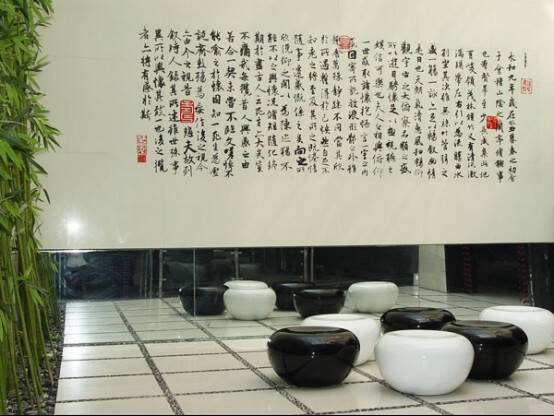 永和九年歲在癸丑暮春之初會
于會稽山陰之蘭亭脩禊事
也群賢畢至少長咸集此地
有崇山峻領茂林脩竹又有清流激
湍暎帶左右引以為流觴曲水
列坐其次雖無絲竹管弦之
盛一觴一詠亦足以暢敘幽情
是日也天朗氣清惠風和暢仰
觀宇宙之大俯察品類之盛
所以遊目騁懷足以極視聽之
娛信可樂也夫人之相與俯仰
一世或取諸懷抱悟言一室之內
或因寄所託放浪形骸之外雖
趣舍萬殊靜躁不同當其欣
於所遇暫得於己怏然自足不
知老之將至及其所之既惓情
隨事遷感慨係之矣向之所
欣俛仰之間以為陳跡猶不
能不以之興懷況脩短隨化終
期於盡古人云死生亦大矣豈
不痛哉每攬昔人興感之由
若合一契未嘗不臨文嗟悼不
能喻之於懷固知一死生為虛
誕齊彭殤為妄作後之視今
亦由今之視昔悲夫故列
敘時人錄其所述雖世殊事
異所以興懷其致一也後之攬
者亦將有感於斯